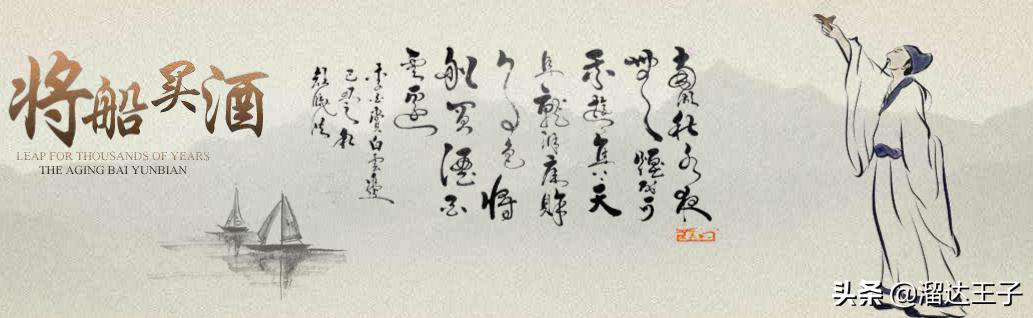 将船买酒
LEAP FOR THOUSANDS OF YEARS
THE AGING BAI YUNBIAN
南湖秋水夜
無煙耐可
乘流直上天
且就洞庭賒
月色將
船買酒白
雲邊
头条 @溜达王子